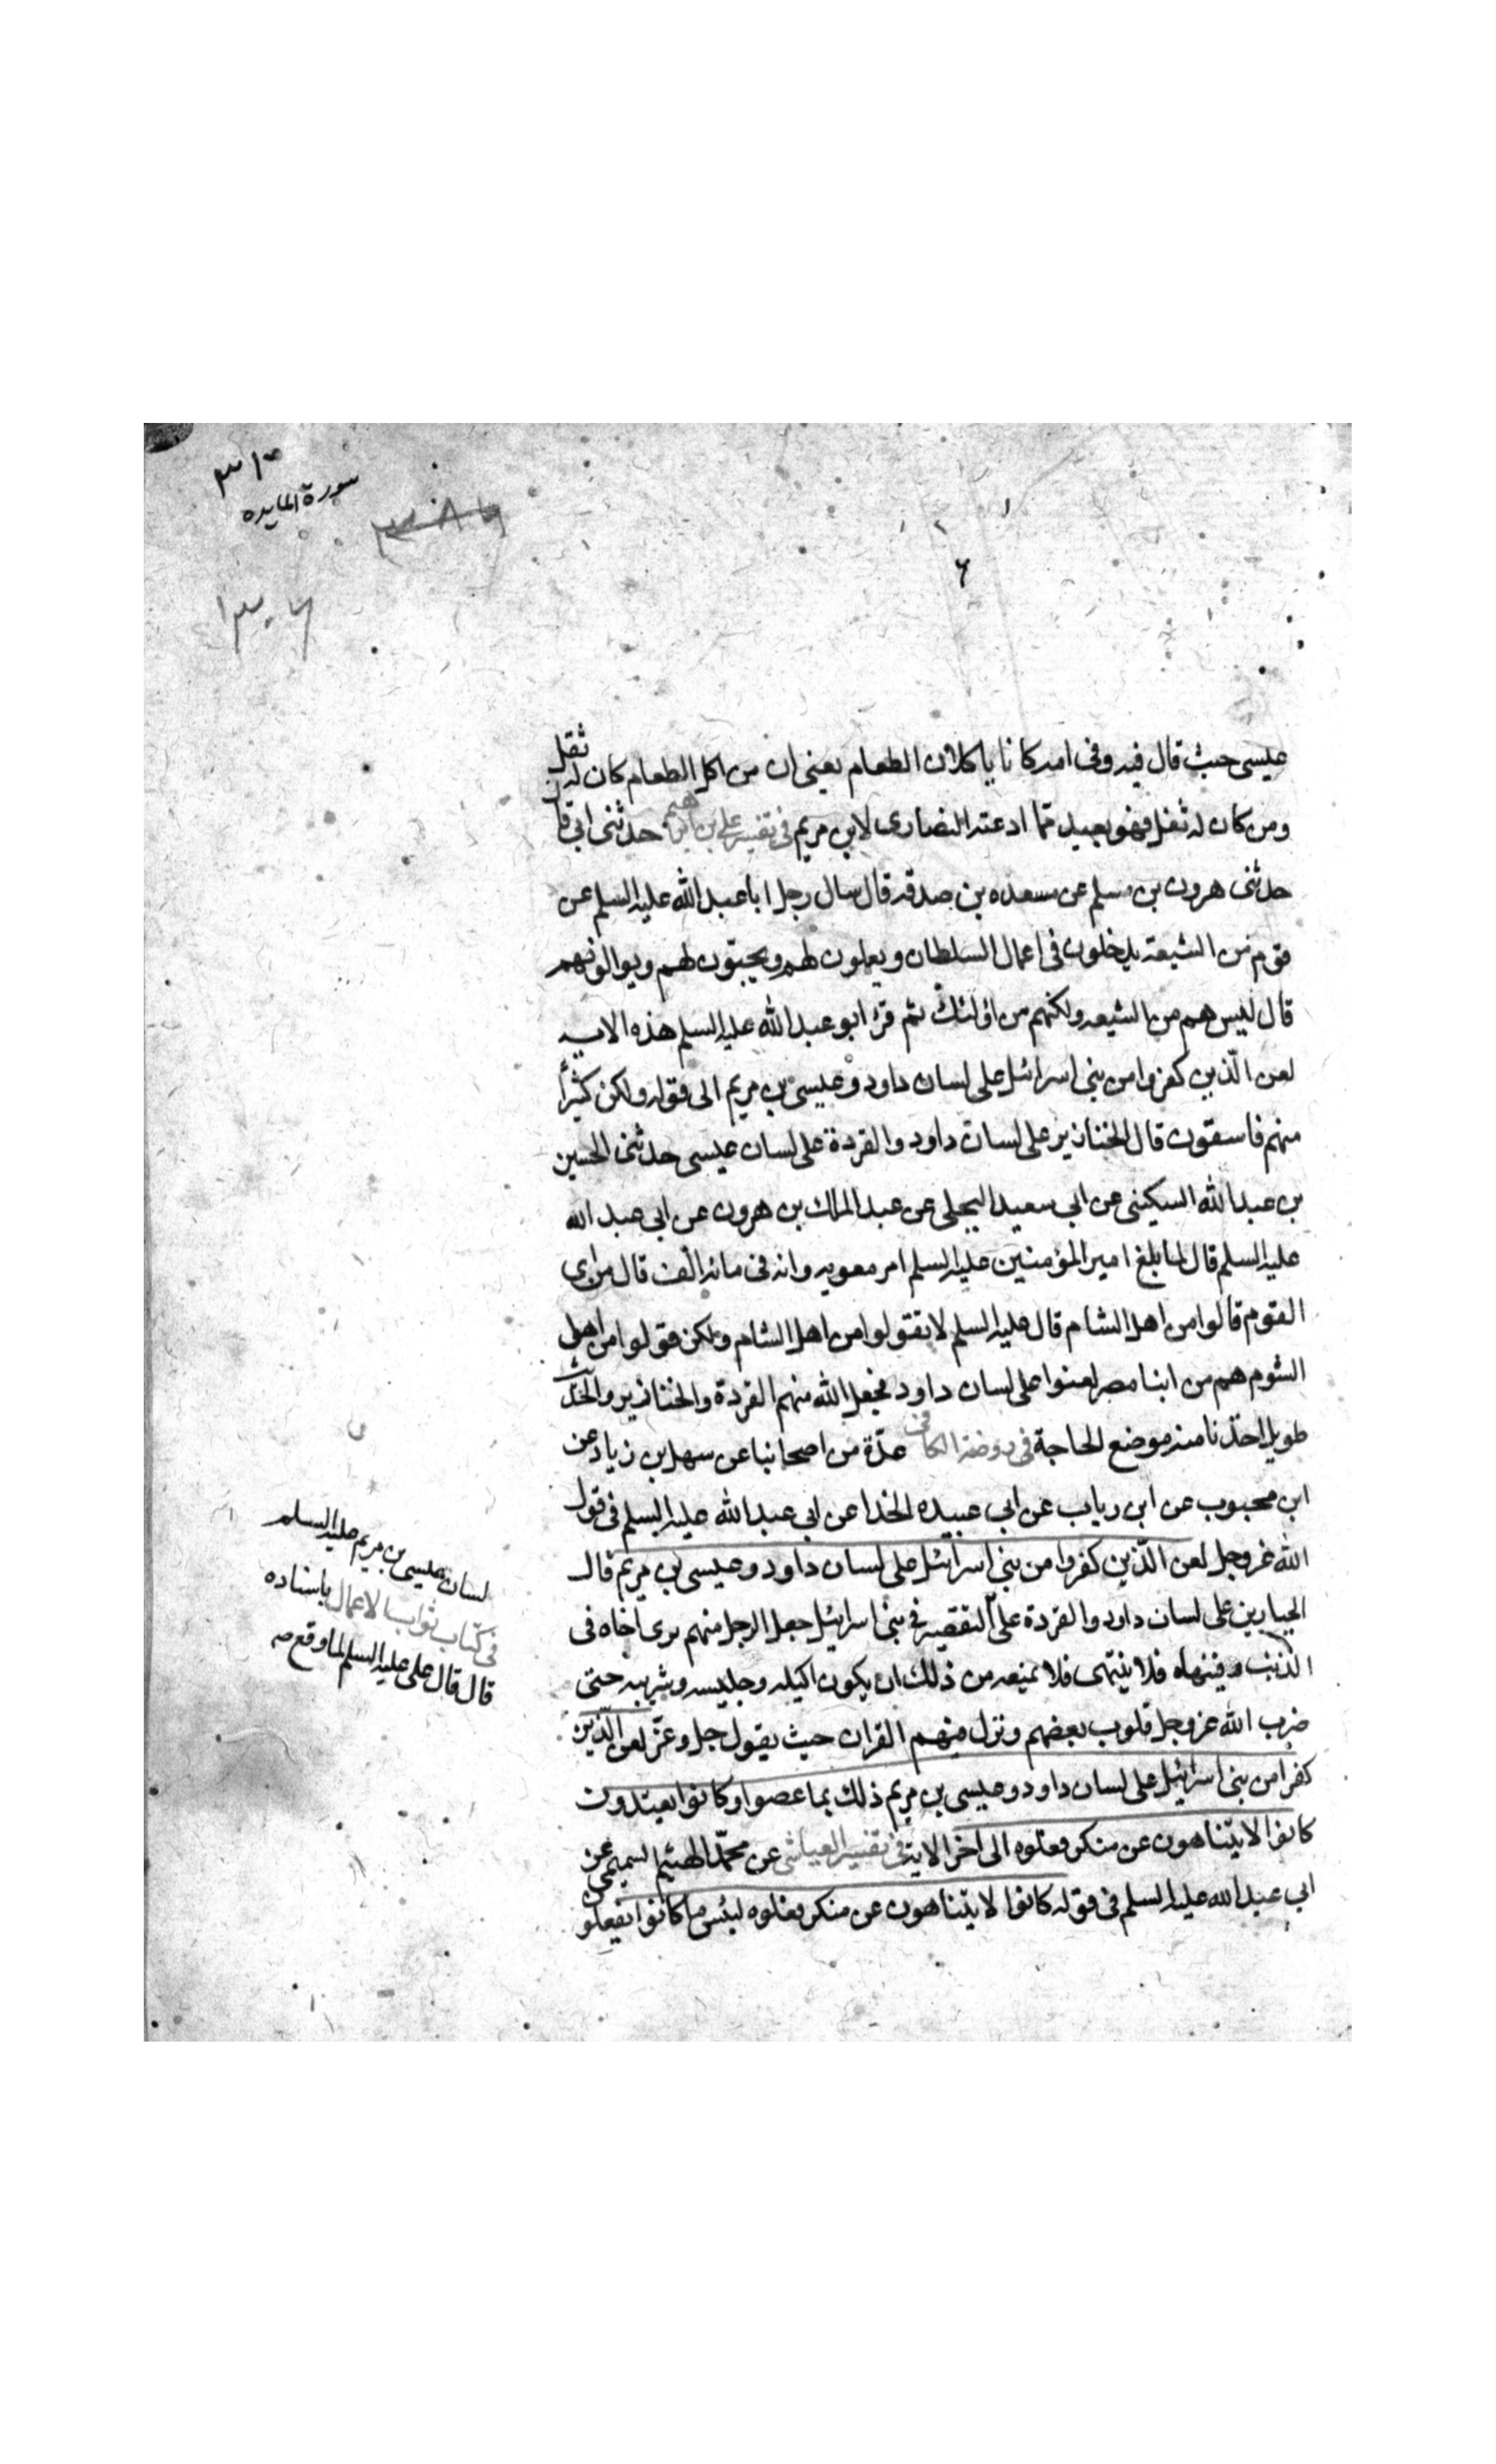 سورة المايده
عيسى حيث قال فيه وفى امه كانا ياكلان الطعام يعنى ان من اكل الطعام كان له ثفل
ومن كان له ثفل فهو بعيد مما ادعته النصارى لابن مريم فى تفسير على بن ابرهيم حدثنى ابى قا
حدثنى هرون بن مسلم عن مسعده بن صدقه قال سال رجل ابا عبد الله عليه السلم عن
قوم من الشيعه يدخلون فى اعمال السلطان ويعملون لهم ويحبّون لهم ويوالونهم
قال ليس هم من الشيعه ولكنهم من اولئك ثم قرء ابو عبد الله عليه السلم هذه الايه
لعن الّذين كفروا من بنى اسرائيل على لسان داود وعيسى بن مريم الى قوله ولكن كثيراً
منهم فاسقون قال الخنازير على لسان داود والقردة على لسان عيسى حدثنى الحسين
بن عبد الله السكينى عن ابى سعيد البجلى عن عبد الملك بن هرون عن ابى عبد الله
عليه السلم قال لما بلغ امير المؤمنين عليه السلم امر معويه وانه فى مائه الف قال من اى
القوم قالوا من اهل الشام قال عليه السلم لا تقولوا من اهل الشام ولكن قولوا من اهل
الشوم هم من ابنا مصر لعنوا على لسان داود فجعل الله منهم القردة والخنازير والحديث
طويل اخذنا منه موضع الحاجة فى روضة الكافى عدّة من اصحابنا عن سهل بن زياد عن
ابن محبوب عن ابن رياب عن ابى عبيده الحذا عن ابى عبد الله عليه السلم فى قول
الله عز وجل لعن الّذين كفروا من بنى اسرائيل على لسان داود وعيسى بن مريم قال
الخنازير على لسان داود والقردة على التقصير فى بنى اسرائيل جعل الرجل منهم يرى اخاه فى
الذنب فينهاه فلا ينتهى فلا يمنعه من ذلك ان يكون اكيله وجليسه وشريبه حتى
ضرب الله عز وجل قلوب بعضهم ونزل فيهم القران حيث يقول جل وعزّ لعن الّذين
كفرا من بنى اسرائيل على لسان داود وعيسى بن مريم ذلك بما عصوا وكانوا يعتدون
كانوا لا يتناهون عن منكر فعلوه الى اخر الاية فى تفسير العياشى عن محمّد الهيثم التميمى عن
ابى عبد الله عليه السلم فى قوله كانوا لا يتناهون عن منكر فعلوه لبئس ما كانوا يفعلون
لسان عيسى بن مريم عليه السلم
فى كتاب ثواب الاعمال باسناده
قال قال على عليه السلم لما وقع